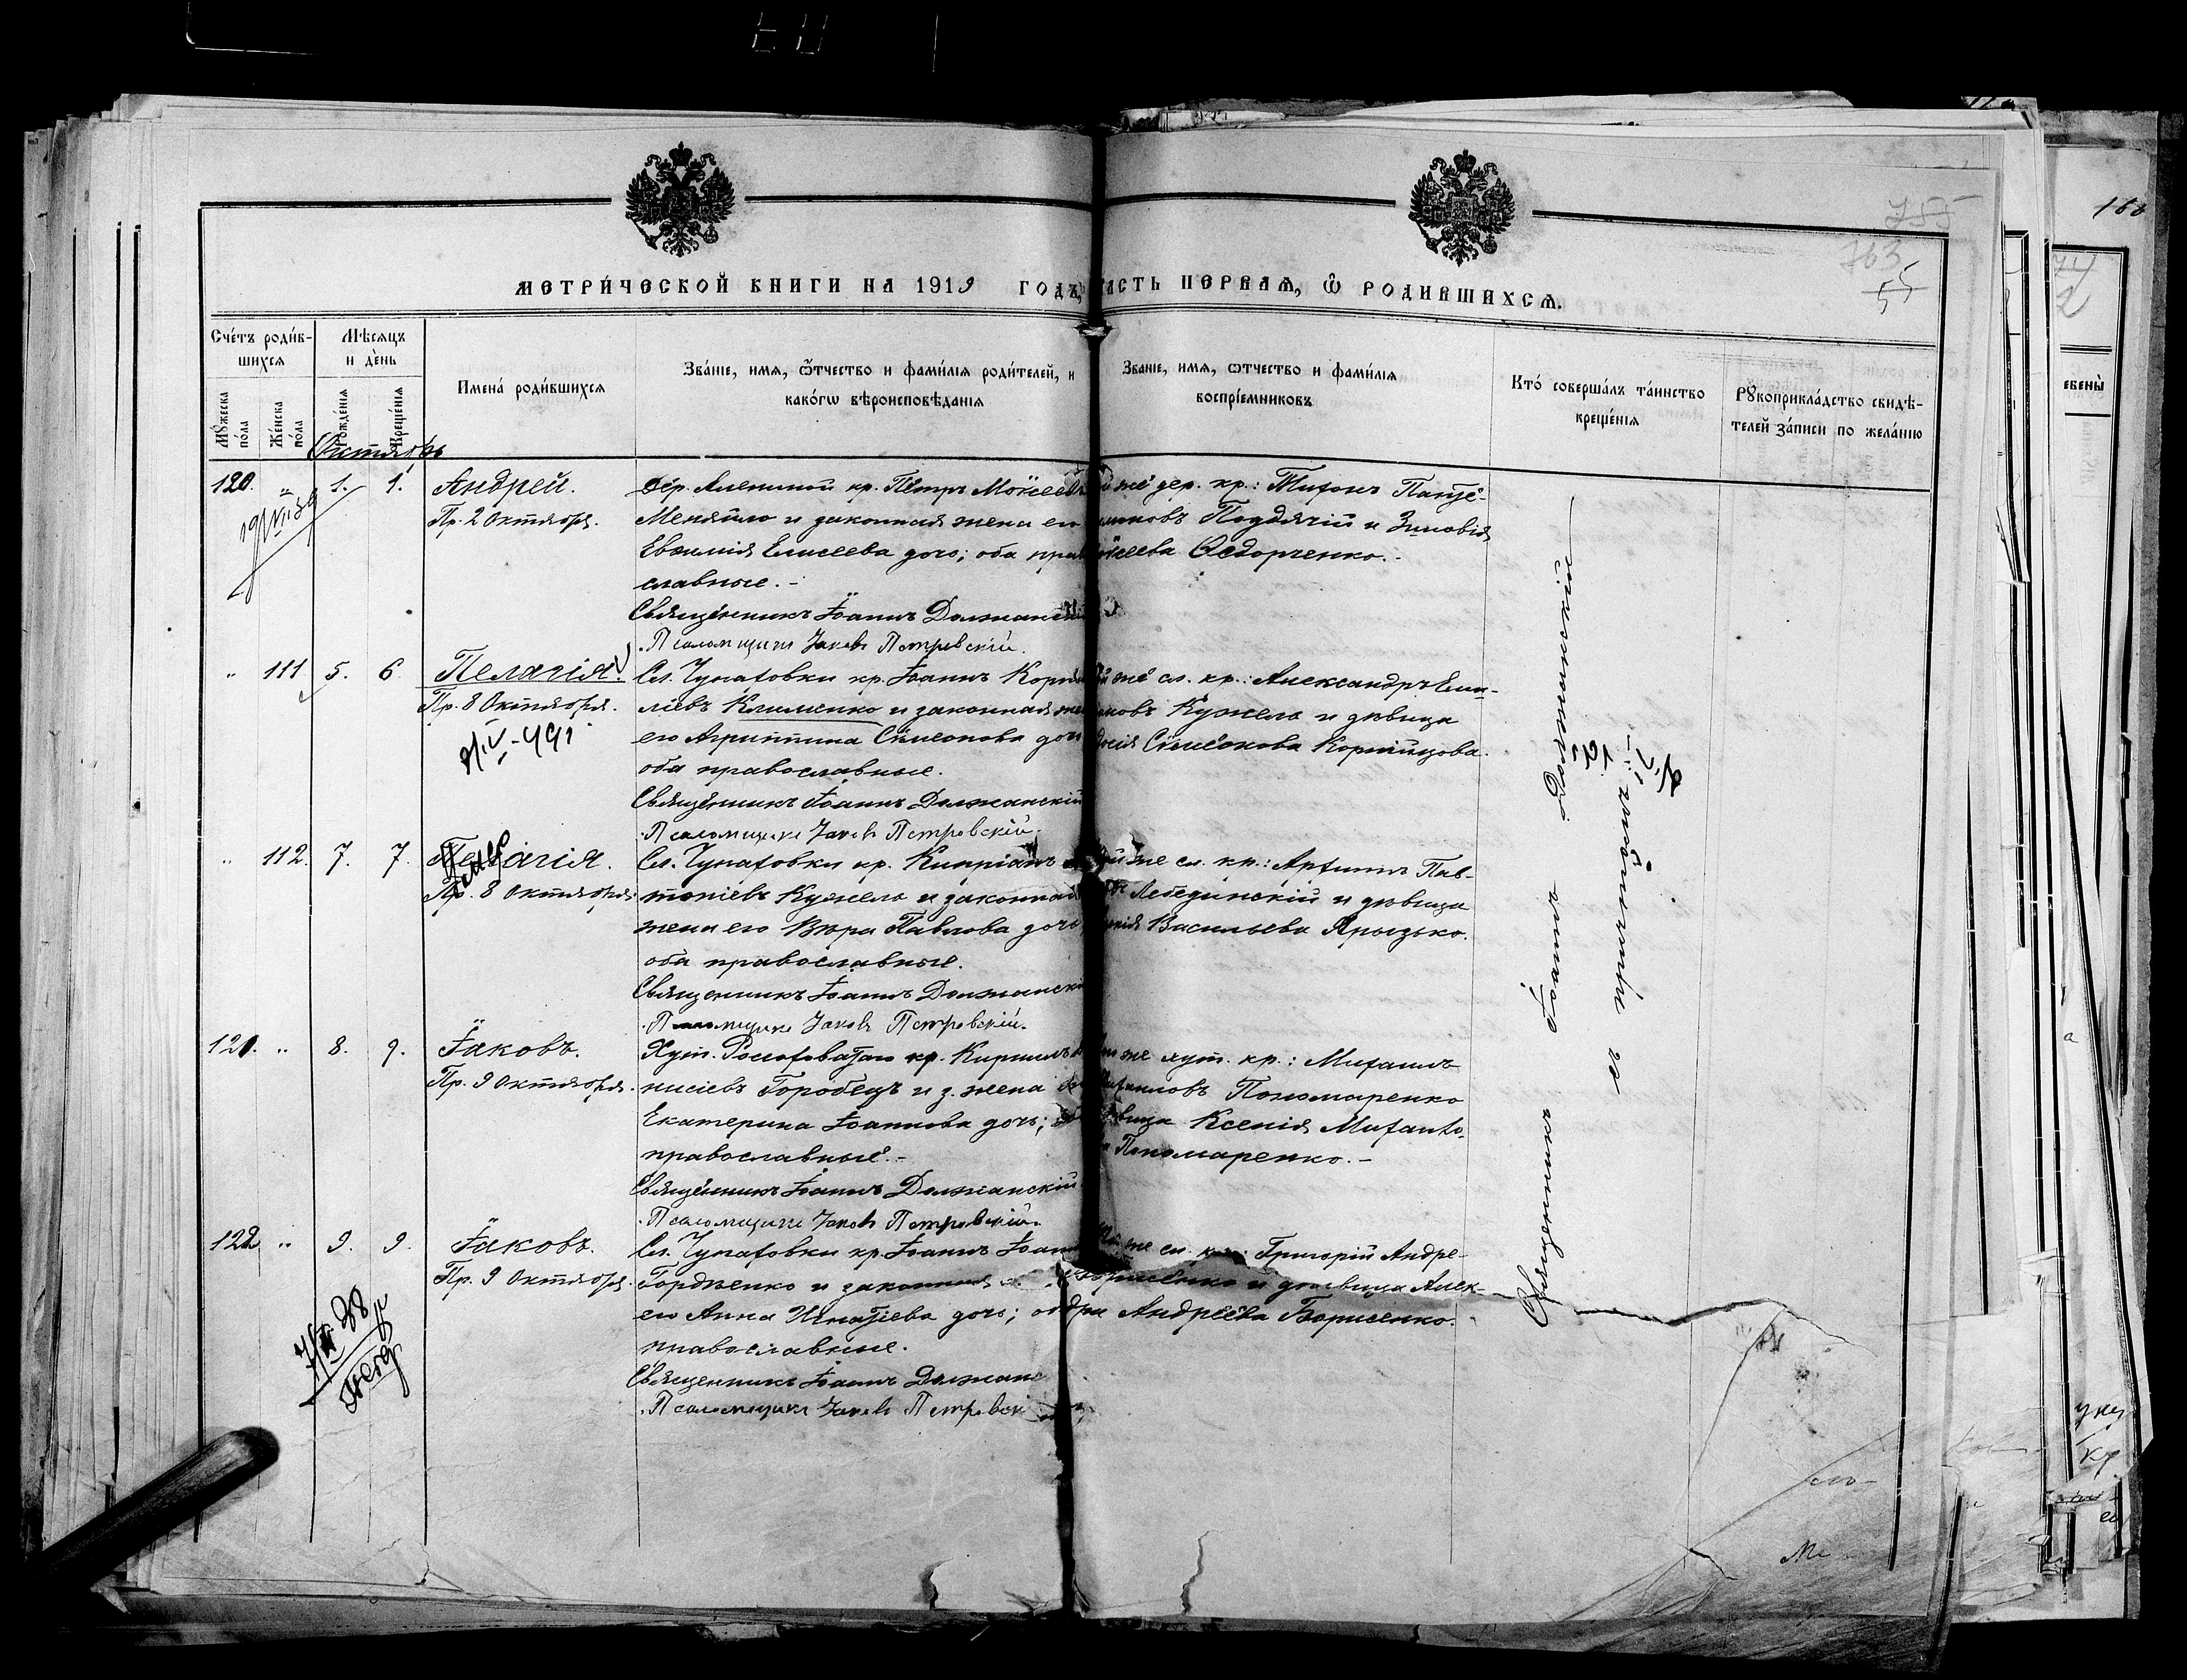 МЕТРИ́ЧЕСКОЙ КНИГИ НА 1919 ГОДЪ, ЧАСТЬ ПЕРВАЯ, Ѽ РОДИВШИХСЯ.
763
55
Сче́тъ роди́в-
шихся
Мꙋ́жеска по́ла
Же́нска по́ла
Мѣ́сяцъ
и де́нь
Рожде́нія
Креще́нія
Имена̀ роди́вшихся
Зва́ніе, имя, ѿтчество и фами́лія роди́телей, и
како́гѡ вѣроисповѣ́данія
Зва́ніе, имя, ѿтчество и фами́лія
воспріе́мниковъ
Кто́ соверша́лъ та́инство
креще́нія
Рꙋкоприкла́дство свидѣ́-
телей за́писи по жела́нію
Октябрь
120. " 1. 1. Андрей.
Пр. 2 Октября.
Дер. Алениной кр. Пётръ Моѵсеевъ
Меняйло и законная жена его
Евѳимія Елисеева дочь; оба право
славные. -
Священникъ Іоаннъ Должанскій
Псаломщикъ Іаковъ Петровскій.
же дер. кр.: Тихонъ Панте-
лимоновъ Поддячій и Зиновія
Моѵсеева Ѳедорченко. -
" 111 5. 6. Пелагія.
Пр. 8 Октября.
Сл. Чупаховки кр. Іоаннъ Корни
ліевъ Клименко и законная же
его Агриппина Сѵмеонова дочь
оба православные.
Священникъ Іоаннъ Должанскій
Псаломщикъ Іаковъ Петровскій.
же сл. кр.: Александръ Ели-
Кужель и дѣвица
Сѵмеонова Корнійцова.
" 112. 7. 7. Пелагія.
Пр. 8 Октября.
Сл. Чупаховки кр. Кипріанъ
тоніевъ Кужель и законная
жена его Вѣра Павлова дочь,
оба православные.
Священникъ Іоаннъ Должанскій
Псаломщикъ Іаковъ Петровскій.
же сл. кр.: Архипъ Пав-
Лебединскій и дѣвица
Васильева Ярызько.
121. " 8. 9. Іаковъ.
Пр. 9 Октября.
Хут. кр. Кириллъ
нисіевъ Горобецъ и з. жена
Екатерина Іоаннова дочь;
православные. -
Священникъ Іоаннъ Должанскій
Псаломщикъ Іаковъ Петровскій.
же хут. кр.: Михаилъ
Михаиловъ Пономаренко
дѣвица Ксенія Михаило-
Пономаренко. -
122 " 9. 9. Іаковъ.
Пр. 9 Октября.
Сл. Чупаховки кр. Іоаннъ Іоанн
Гордѣенко и законная
его Анна Игнатіева дочь;
православные.
Священникъ Іоаннъ Должанс
Псаломщикъ Іаковъ Петровскі
же сл. кр.: Григорій Андре-
Борисенко и дѣвица Алек-
Андреева Борисенко.
Священникъ Іоаннъ Должанскій
съ причтомъ